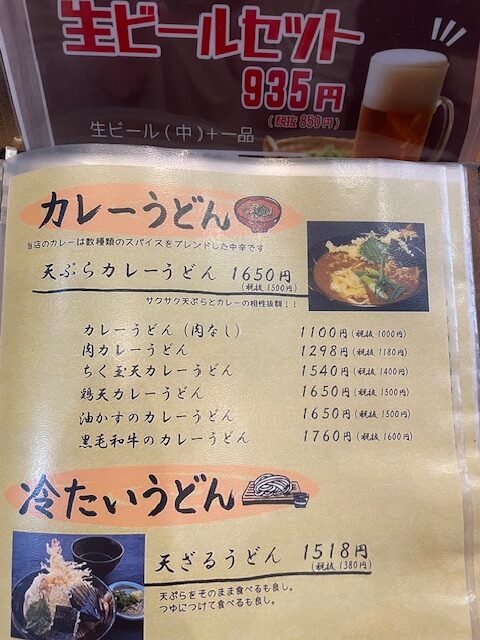 生ビールセット
935円
(税抜 850円)
生ビール(中)+一品
カレーうどん
当店のカレーは数種類のスパイスをブレンドした中辛です
天ぷらカレーうどん 1650円
(税抜 1500円)
サクサク天ぷらとカレーの相性抜群!!
カレーうどん(肉なし) 1100円(税抜 1000円)
肉カレーうどん 1298円(税抜 1180円)
ちく玉天カレーうどん 1540円(税抜 1400円)
鶏天カレーうどん 1650円(税抜 1500円)
油かすのカレーうどん 1650円(税抜 1500円)
黒毛和牛のカレーうどん 1760円(税抜 1600円)
冷たいうどん
天ざるうどん 1518円
(税抜 1380円)
天ぷらをそのまま食べるも良し。
つゆにつけて食べるも良し。